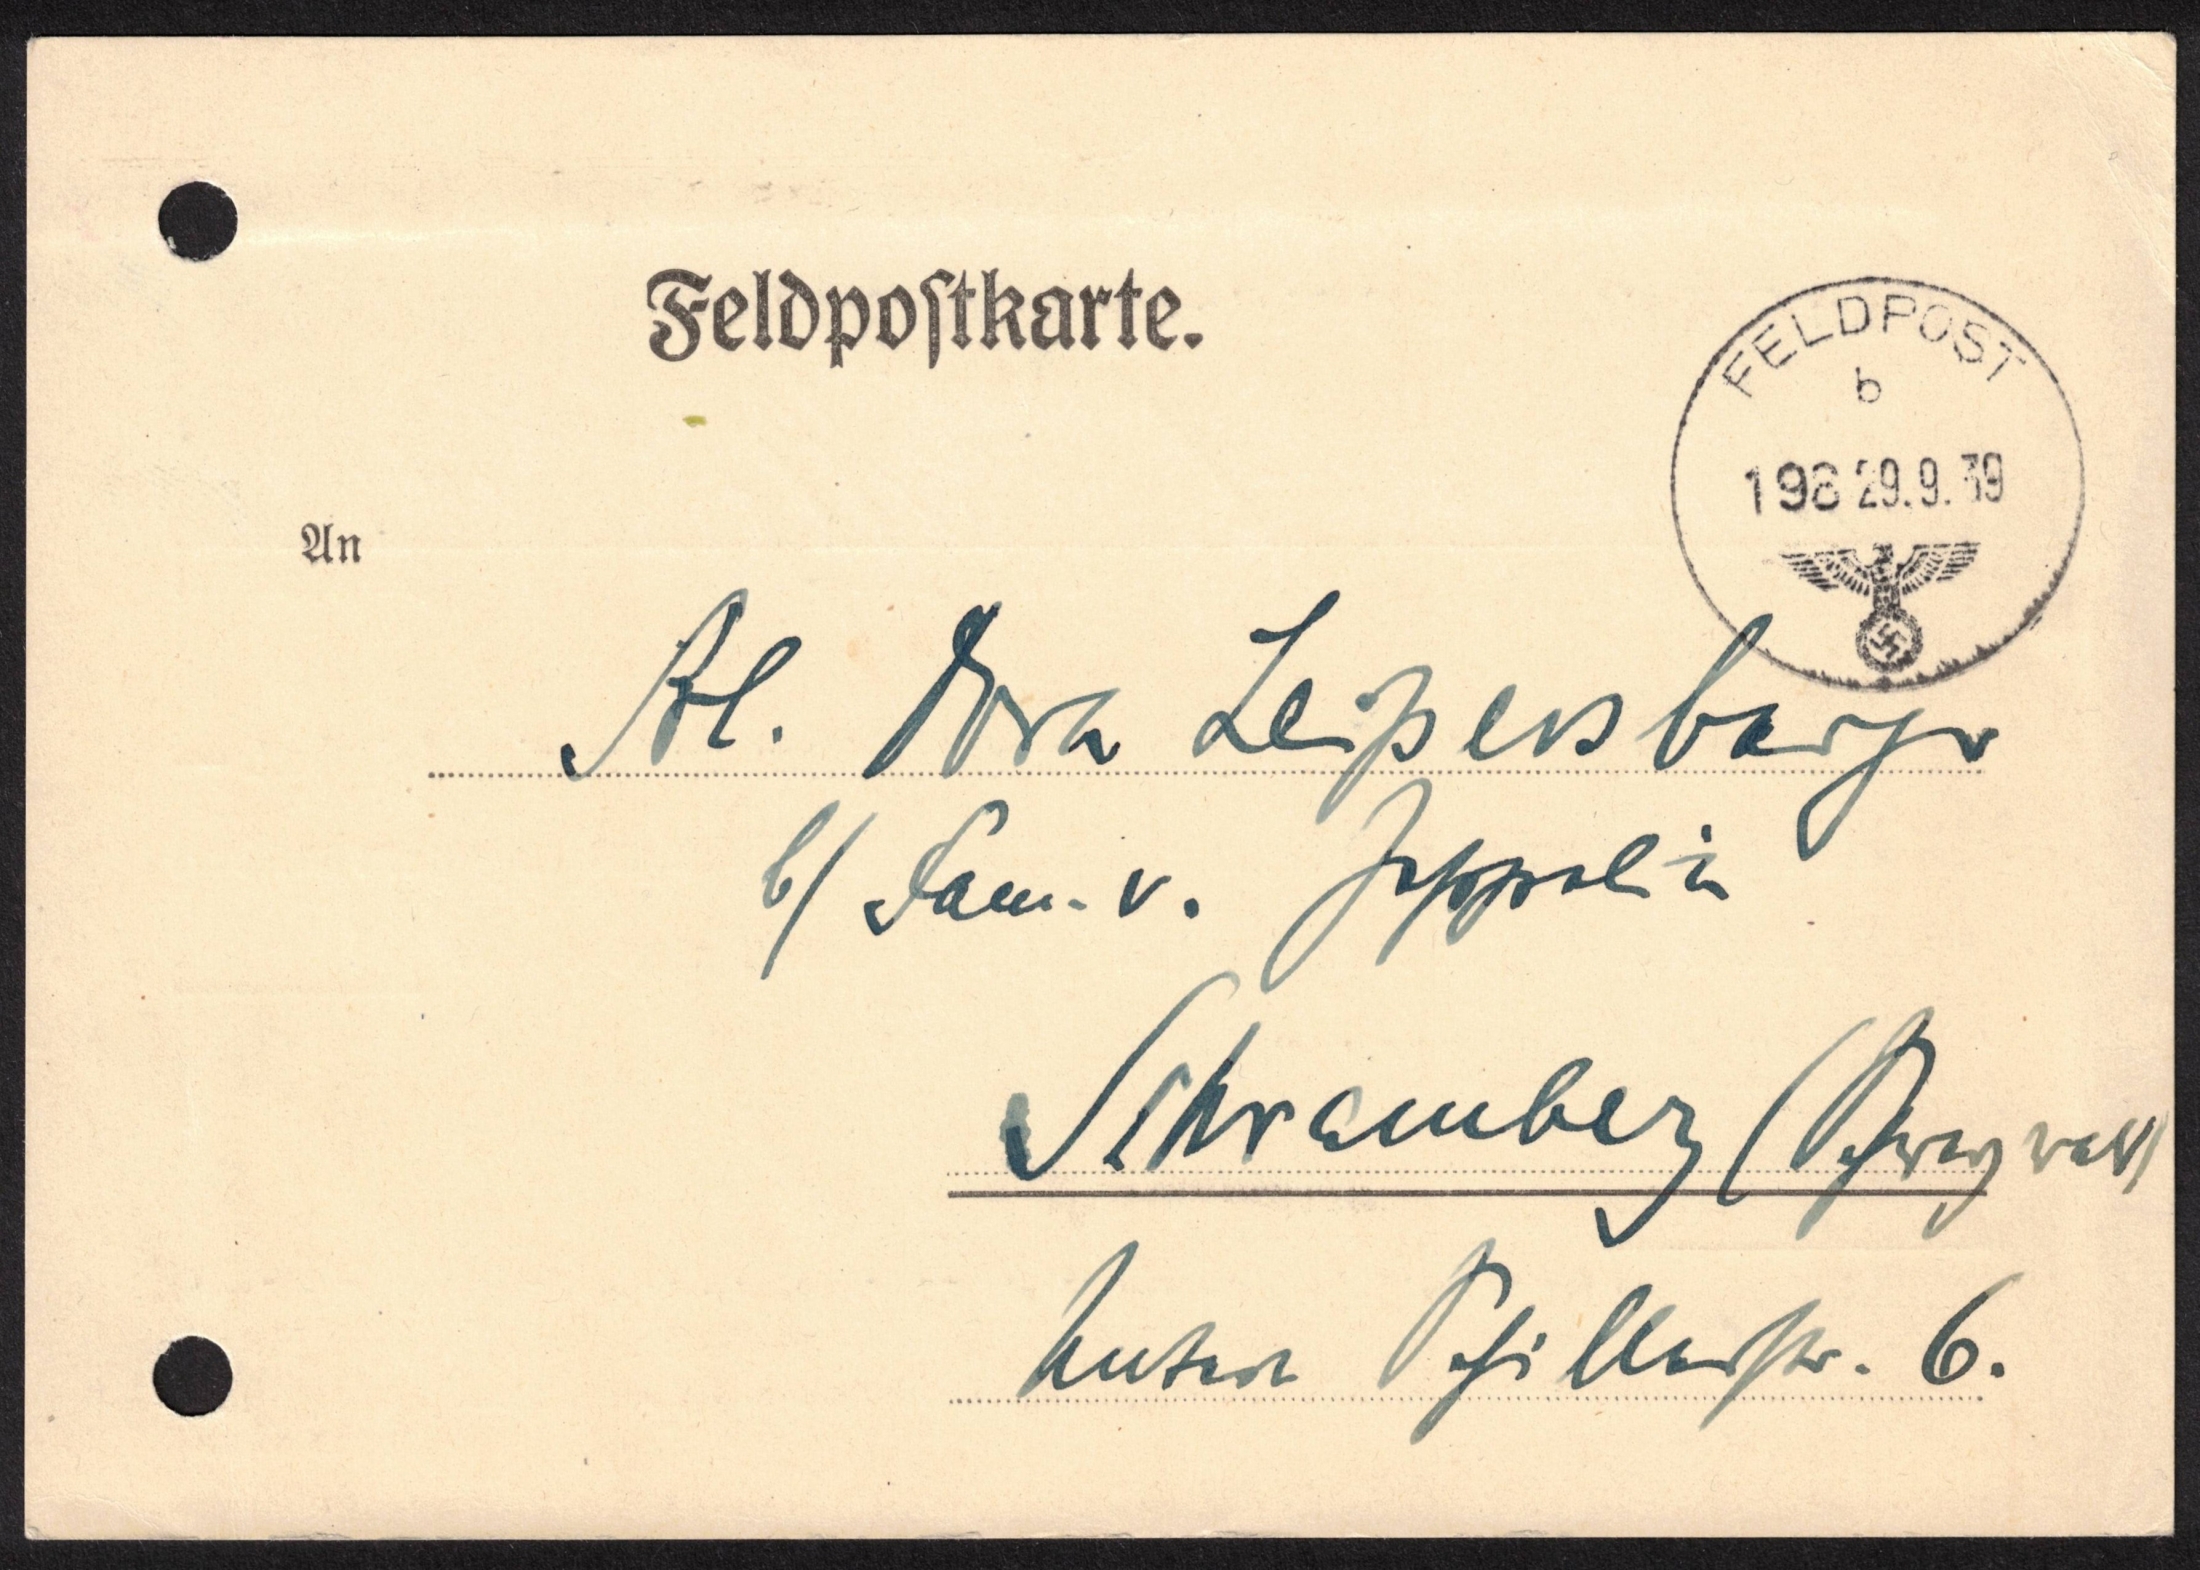 Feldpostkarte.
FELDPOST
b
198 29.9.39
An
Frl. Dora Leipersberger
b/ Fam. v. Zeppelin
Schramberg (Schwarzwald)
Untere Schillerstr. 6.